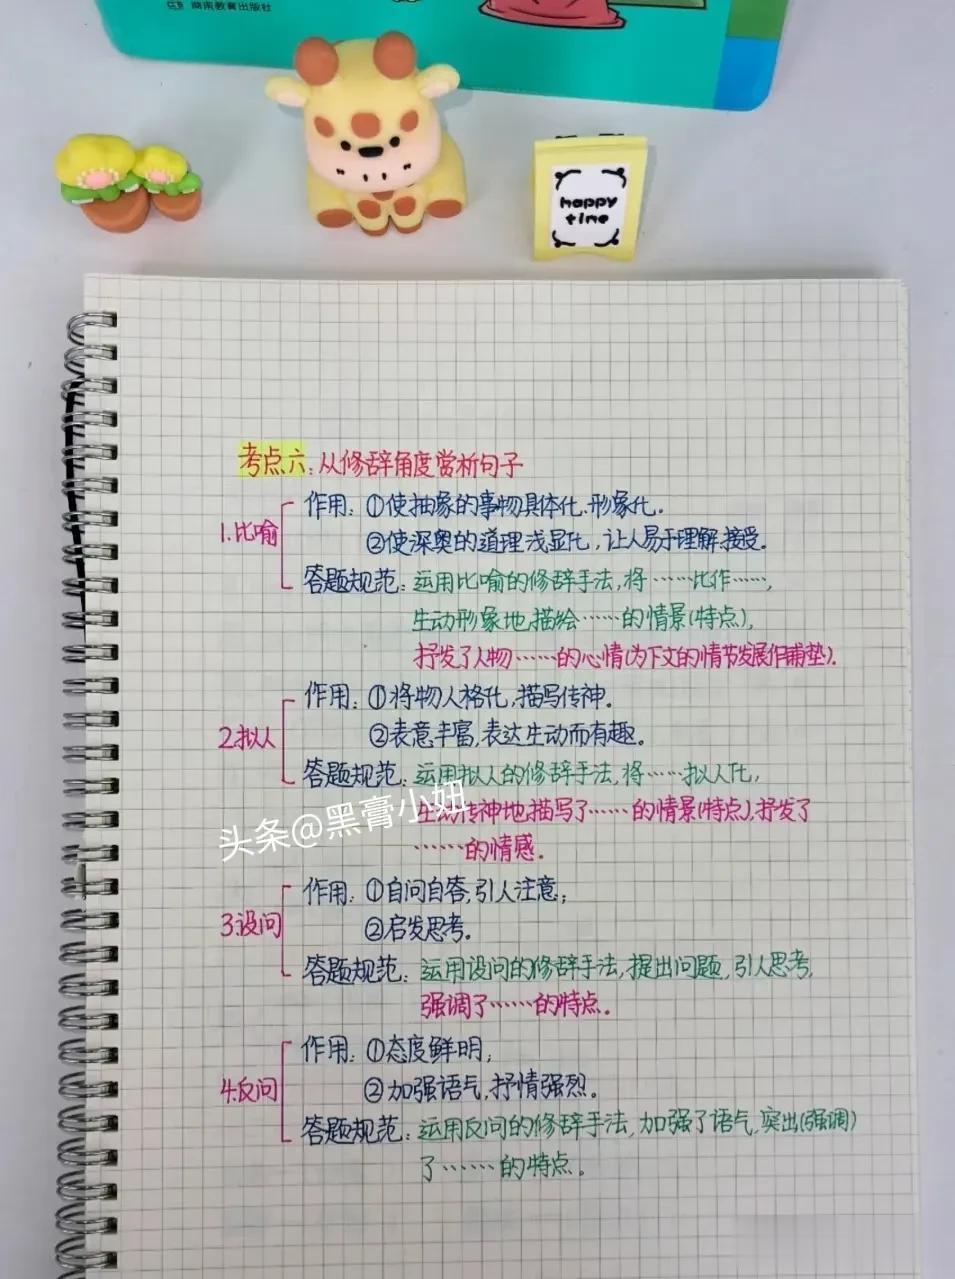 湖南教育出版社
happy
time
考点六:从修辞角度赏析句子
1.比喻
作用:①使抽象的事物具体化、形象化。
②使深奥的道理浅显化,让人易于理解、接受。
答题规范:运用比喻的修辞手法,将……比作……,
生动形象地描绘……的情景(特点),
抒发了人物……的心情(为下文的情节发展作铺垫).
2.拟人
作用:①将物人格化,描写传神。
②表意丰富,表达生动而有趣。
答题规范:运用拟人的修辞手法,将……拟人化,
生动传神地描写了……的情景(特点),抒发了
……的情感.
头条@黑膏小妞
3.设问
作用:①自问自答,引人注意;
②启发思考。
答题规范:运用设问的修辞手法,提出问题,引人思考,
强调了……的特点。
4.反问
作用:①态度鲜明;
②加强语气,抒情强烈。
答题规范:运用反问的修辞手法,加强了语气,突出(强调)
了……的特点。